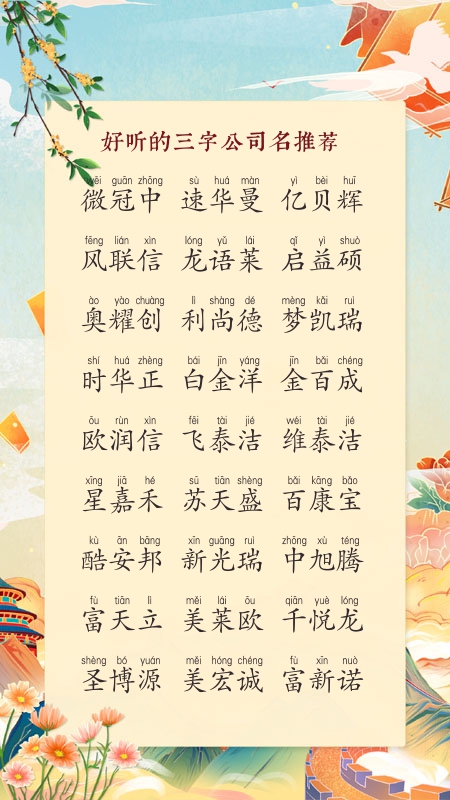 好听的三字公司名推荐
wēi guān zhōng sù huá màn yì bèi huī
微冠中 速华曼 亿贝辉
fēng lián xìn lóng yǔ lái qǐ yì shuò
风联信 龙语莱 启益硕
ào yào chuàng lì shàng dé mèng kǎi ruì
奥耀创 利尚德 梦凯瑞
shí huá zhèng bái jīn yáng jīn bǎi chéng
时华正 白金洋 金百成
ōu rùn xìn fēi tài jié wéi tài jié
欧润信 飞泰洁 维泰洁
xīng jiā hé sū tiān shèng bǎi kāng bǎo
星嘉禾 苏天盛 百康宝
kù ān bāng xīn guāng ruì zhōng xù téng
酷安邦 新光瑞 中旭腾
fù tiān lì měi lái ōu qiān yuè lóng
富天立 美莱欧 千悦龙
shèng bó yuán měi hóng chéng fù xīn nuò
圣博源 美宏诚 富新诺